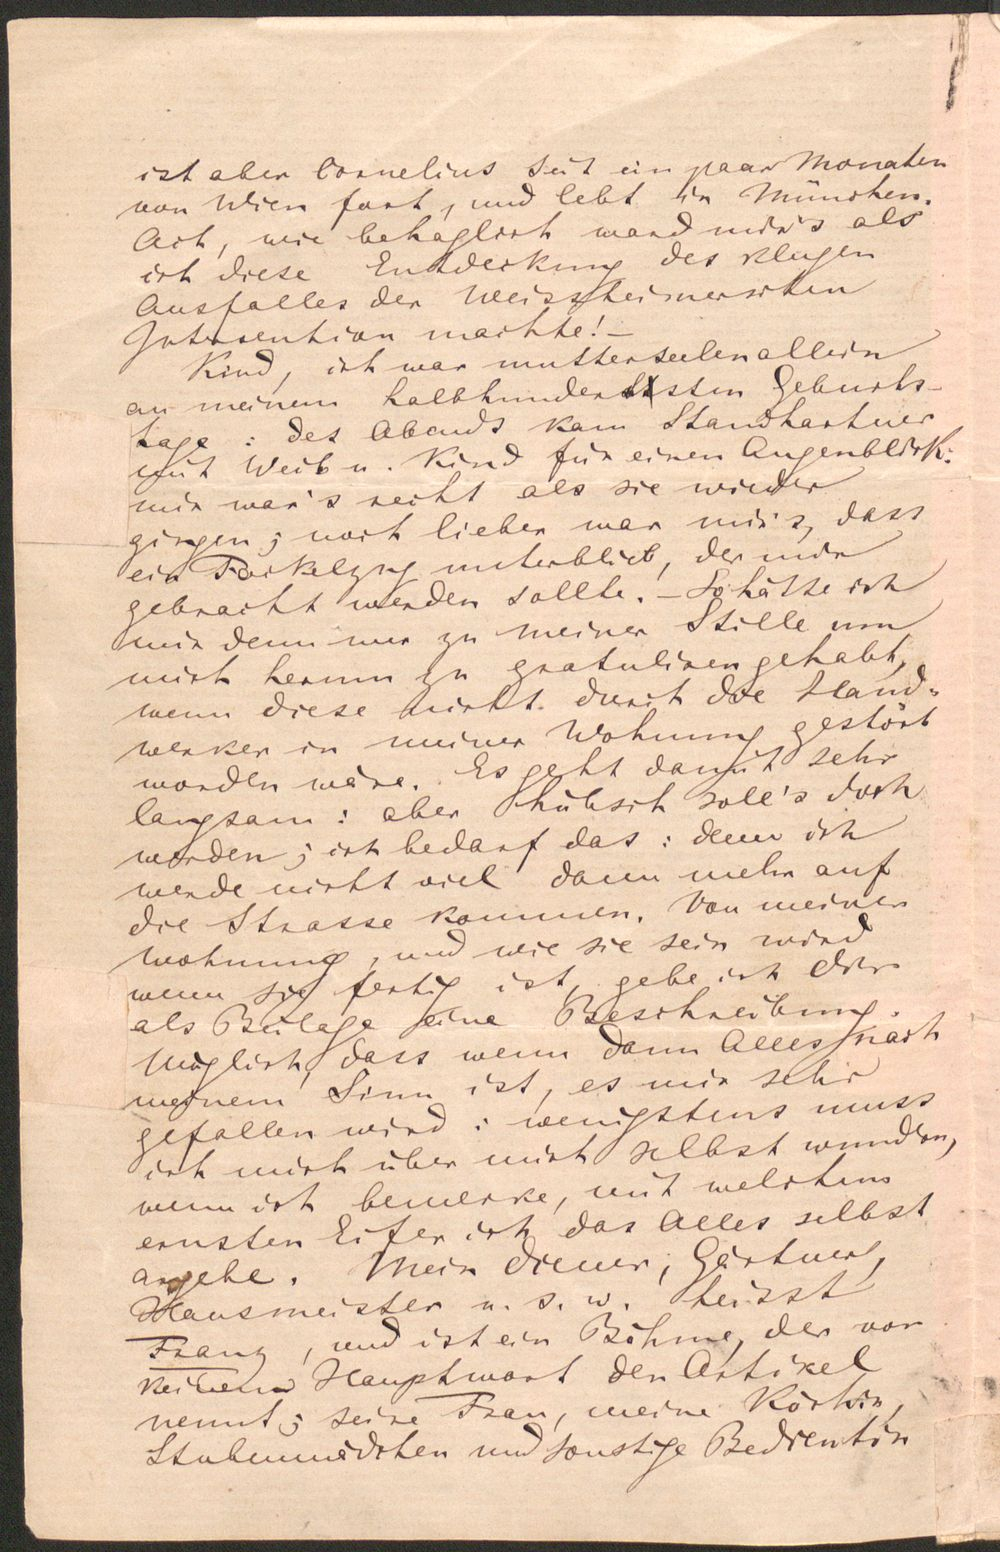 ist aber Cornelius seit ein paar Monaten
von Wien fort, und lebt in München.
Ach, wie behaglich ward mir's als
ich diese Entdeckung des klugen
Ausfalles der Weissheimerschen
Intervention machte! –
Kind, ich war mutterseelenallein
an meinem halbhundertsten Geburts-
tage: des Abends kam Standhartner
mit Weib u. Kind für einen Augenblick:
mir war's recht als sie wieder
gingen; noch lieber war mir's, dass
ein Fackelzug unterblieb, der mir
gebracht werden sollte. – So hätte ich
mir denn nur zu meiner Stille um
mich herum zu gratuliren gehabt,
wenn diese nicht durch die Hand-
werker in meiner Wohnung gestört
worden wäre. Es geht damit sehr
langsam: aber hübsch soll's doch
werden; ich bedarf das: denn ich
werde nicht viel dann mehr auf
die Strasse kommen. Von meiner
Wohnung, und wie sie sein wird
wenn sie fertig ist, gebe ich dir
als Beilage eine Beschreibung.
Möglich, dass wenn dann Alles nach
meinem Sinn ist, es mir sehr
gefallen wird: wenigstens muss
ich mich über mich selbst wundern,
wenn ich bemerke, mit welchem
ernsten Eifer ich das Alles selbst
angebe. Mein Diener, Gärtner,
Hausmeister u. s. w. heisst
Franz, und ist ein Böhme, der vor
keinem Hauptwort den Artikel
nennt; seine Frau, meine Köchin,
Stubenmädchen und sonstige Bedientin